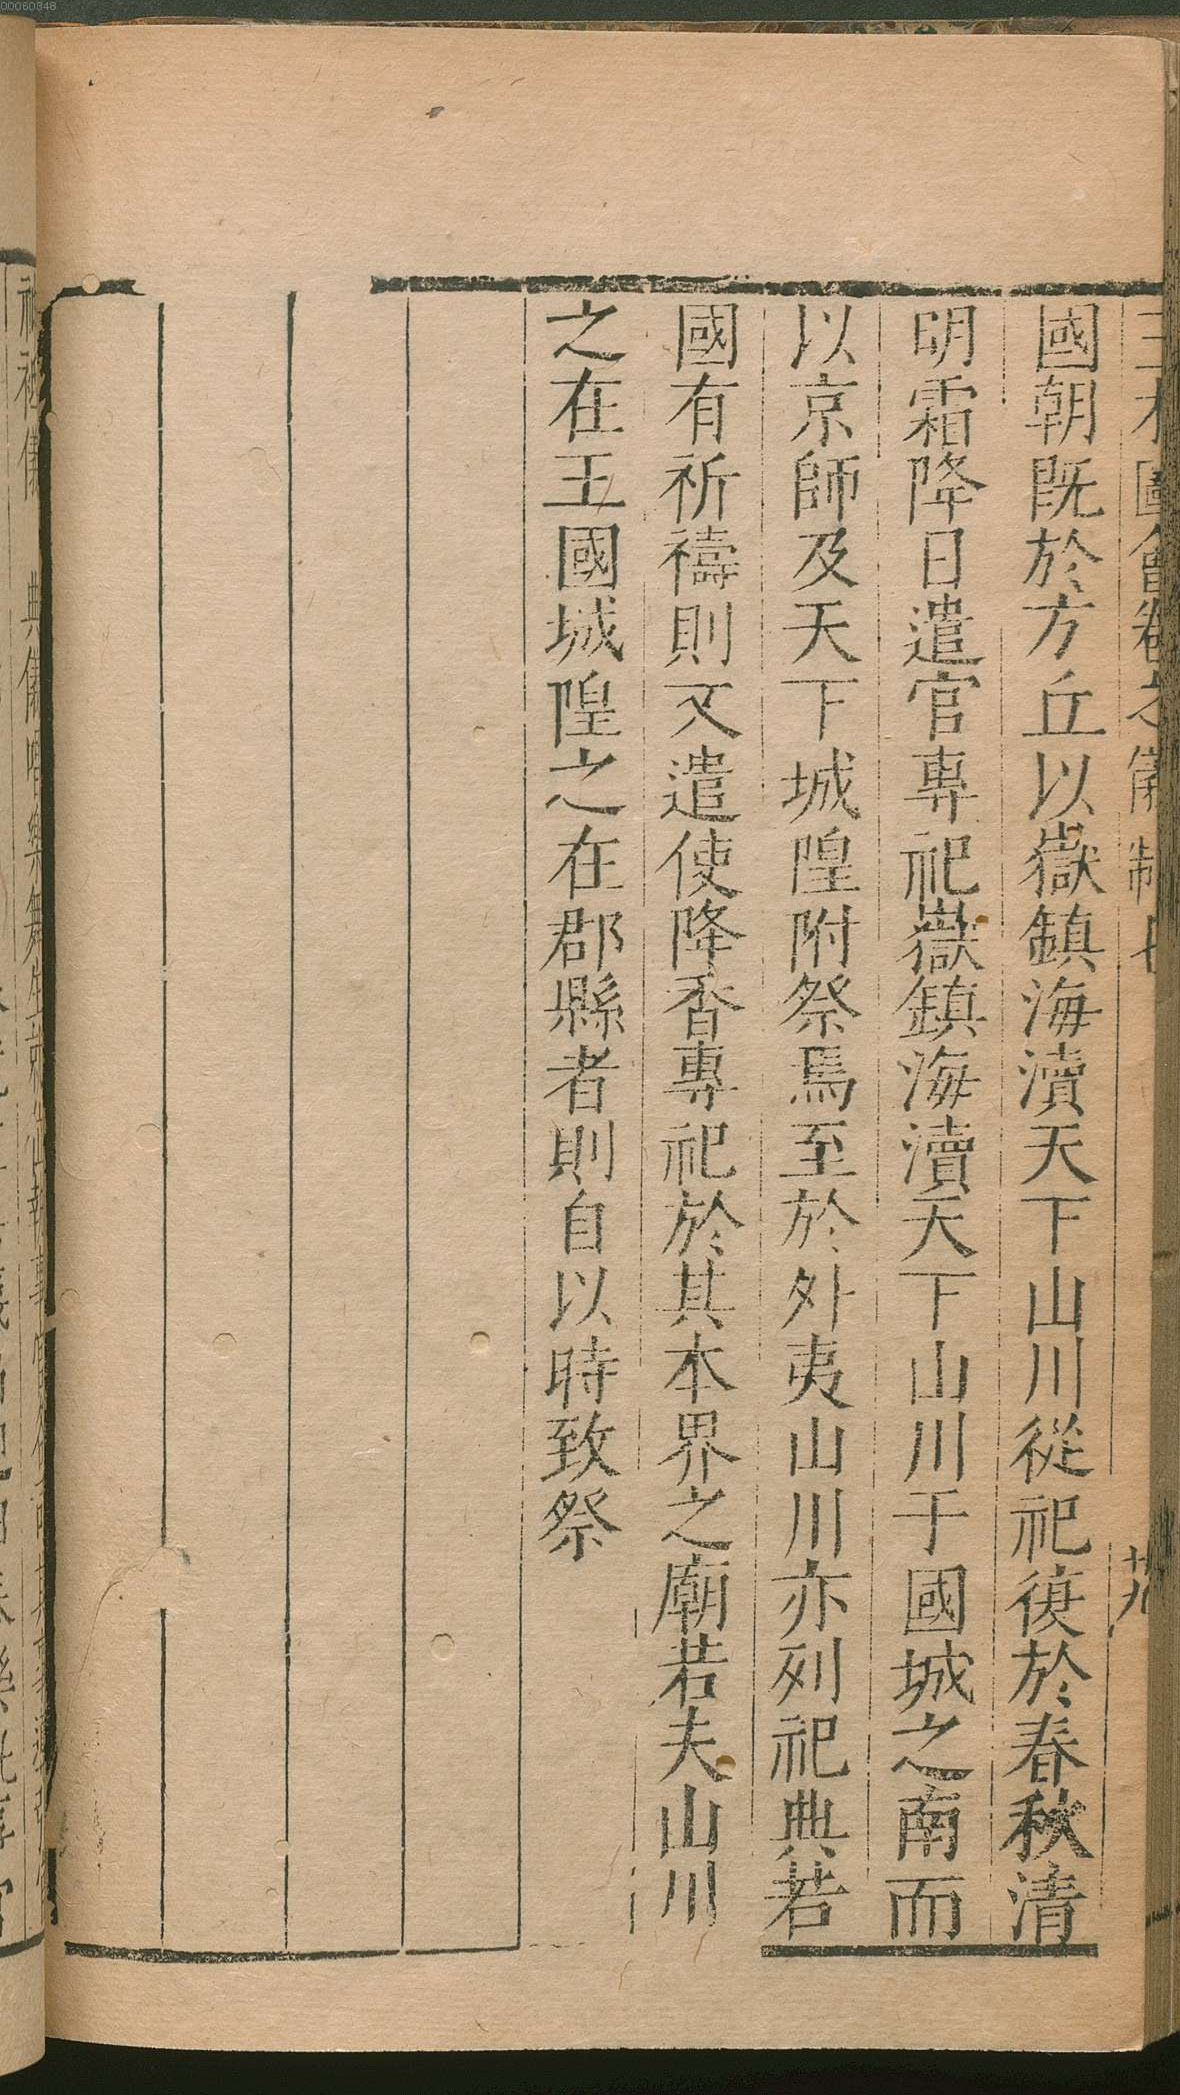 國朝既於方丘以嶽鎮海瀆天下山川從祀復於春秋清
明霜降日遣官專祀嶽鎮海瀆天下山川于國城之南而
以京師及天下城隍附祭焉至於外夷山川亦列祀典若
國有祈禱則又遣使降香專祀於其本界之廟若夫山川
之在王國城隍之在郡縣者則自以時致祭
00060348